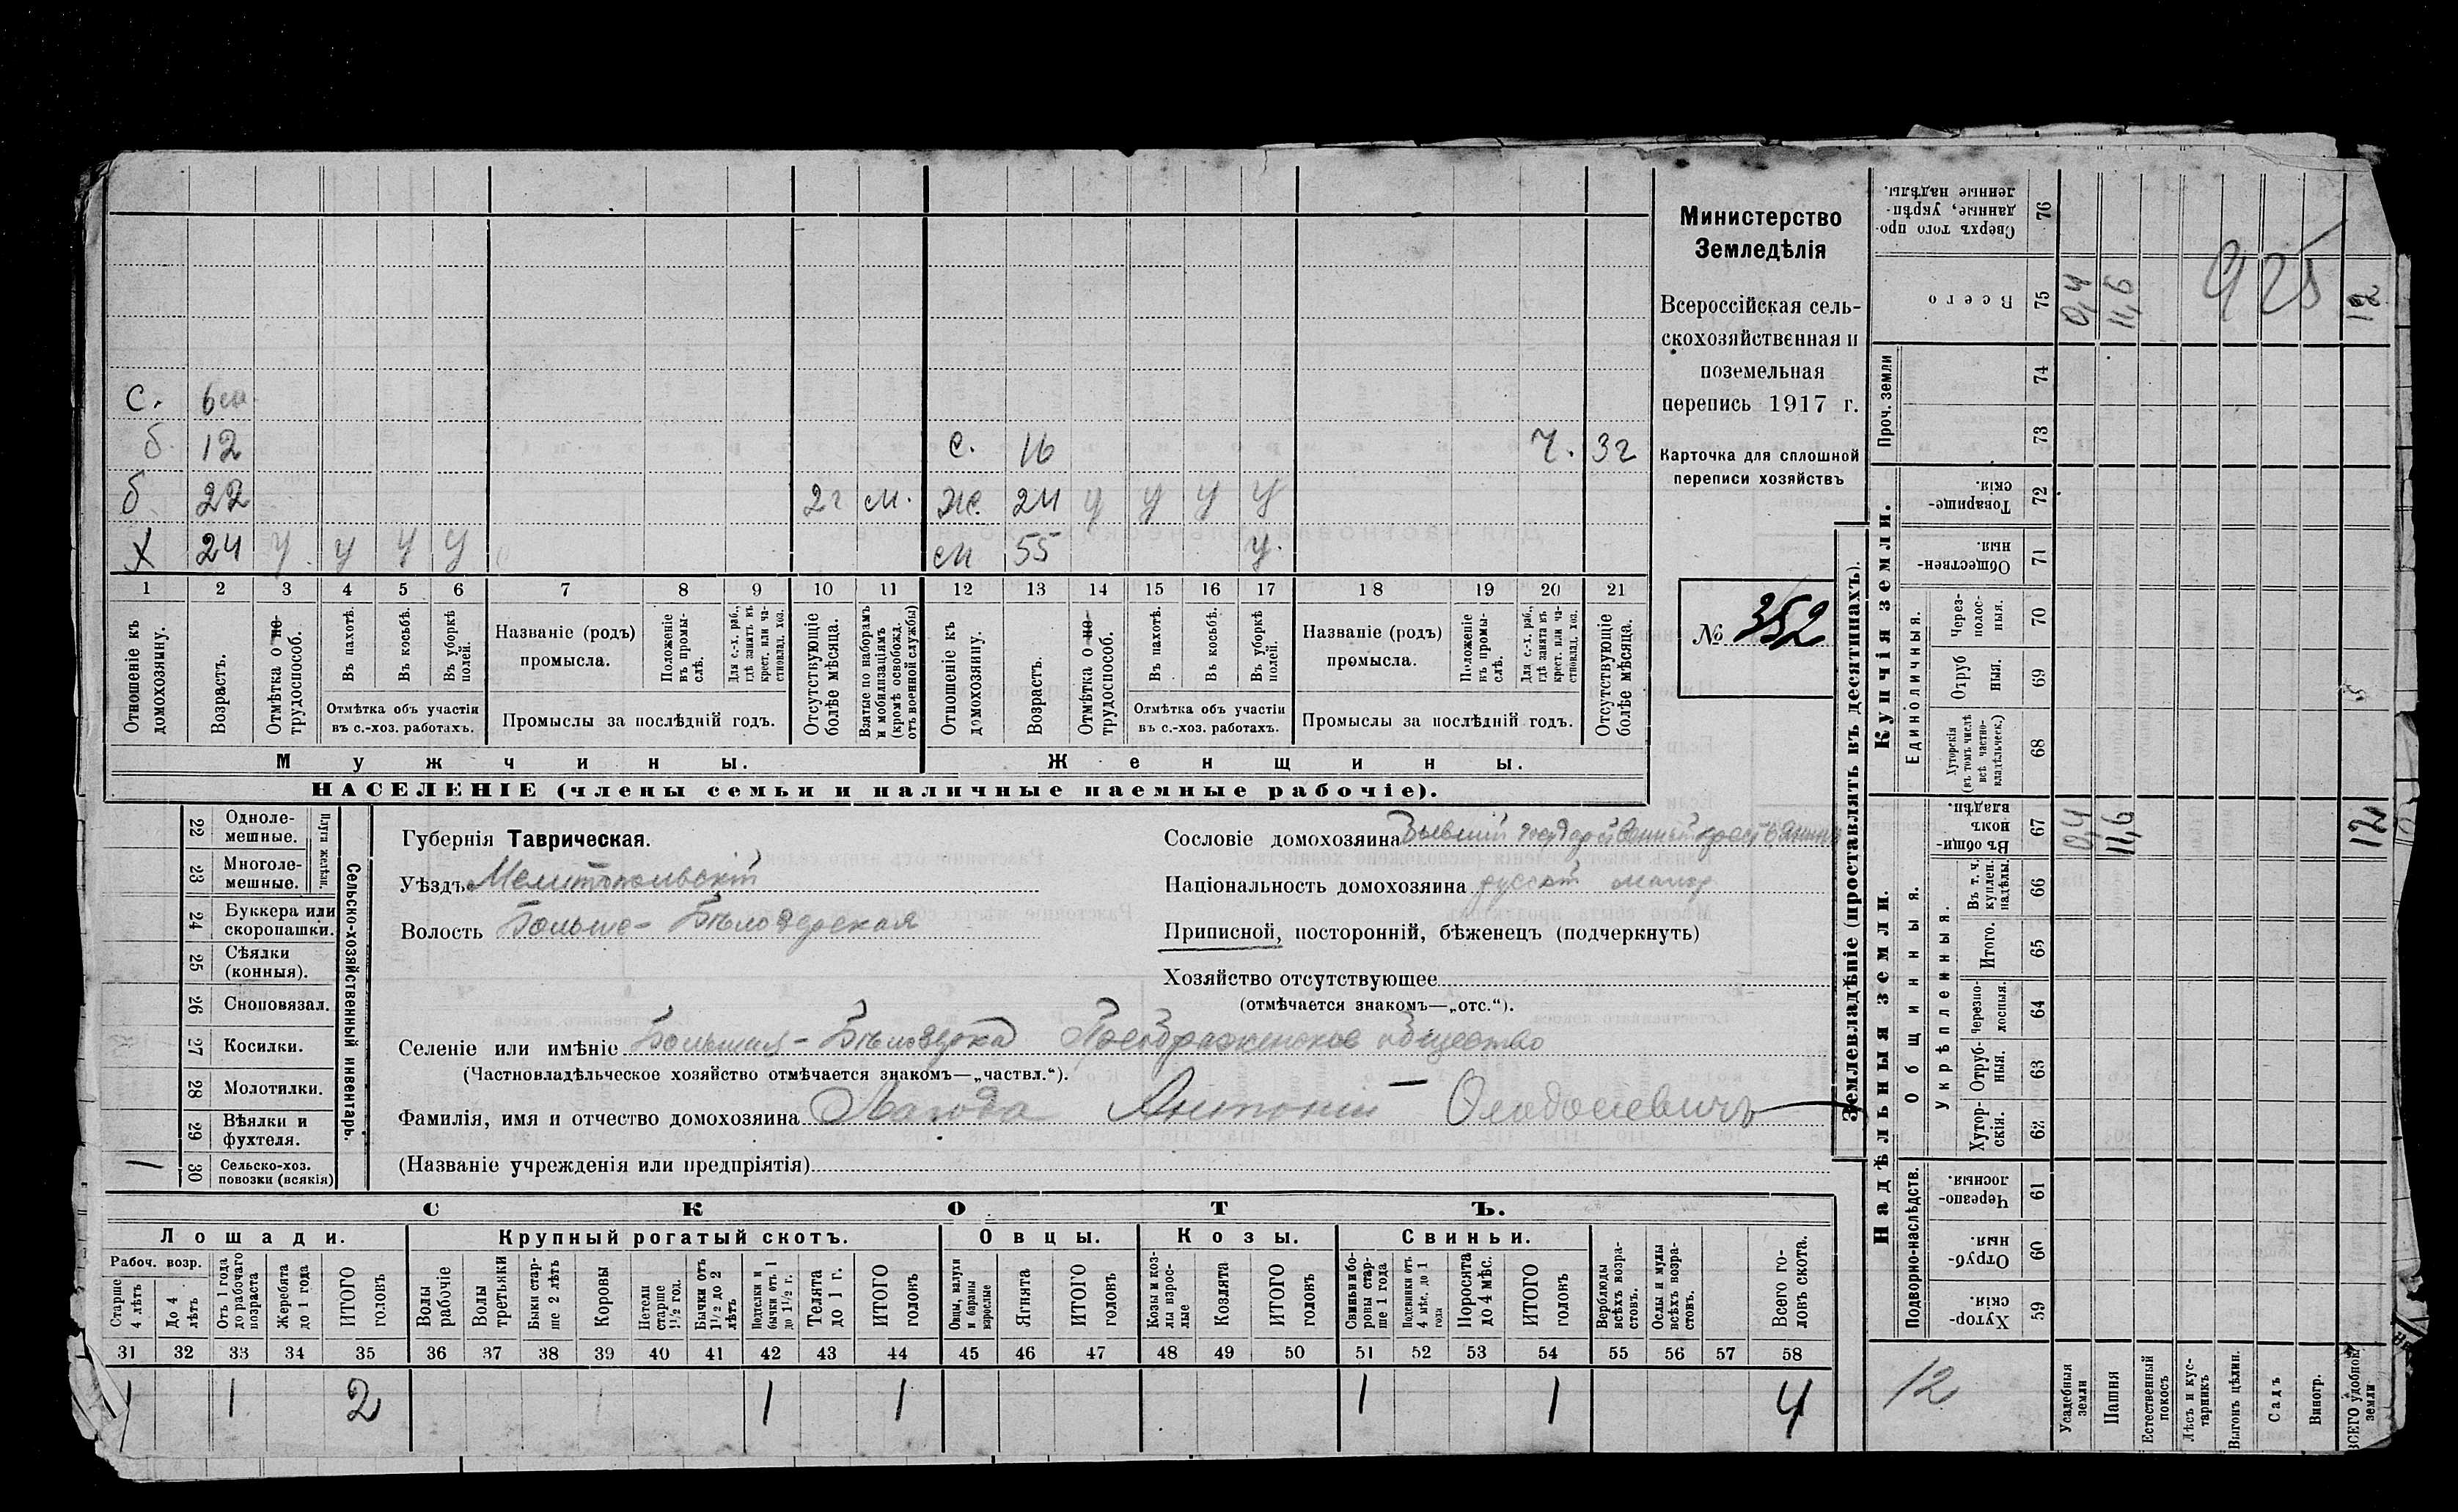 с. 6 м.
б. 12 с. 16 ч. 3 г
б 22 2 г м. ж. 24 у у у у
х 24 у у у у м 55 у.
1 2 3 4 5 6 7 8 9 10 11 12 13 14 15 16 17 18 19 20 21
Отношеніе къ домохозяину.
Возрастъ.
Отмѣтка о не-трудоспособ.
Въ пахотѣ.
Въ косьбѣ.
Въ уборкѣ полей.
Отмѣтка объ участіи въ с.-хоз. работахъ.
Названіе (родъ) промысла.
Положеніе въ промы-слѣ.
Для с.-х. раб., гдѣ занятъ въ крест. или ча-стновлад. хоз.
Промыслы за послѣдній годъ.
Отсутствующіе болѣе мѣсяца.
Взятые по наборамъ и мобилизаціямъ (кромѣ освобожд. отъ военной службы)
Отношеніе къ домохозяину.
Возрастъ.
Отмѣтка о не-трудоспособ.
Въ пахотѣ.
Въ косьбѣ.
Въ уборкѣ полей.
Отмѣтка объ участіи въ с.-хоз. работахъ.
Названіе (родъ) промысла.
Положеніе въ промы-слѣ.
Для с.-х. раб., гдѣ занята въ крест. или ча-стновлад. хоз.
Промыслы за послѣдній годъ.
Отсутствующіе болѣе мѣсяца.
Мужчины. Женщины.
НАСЕЛЕНІЕ (члены семьи и наличные наемные рабочіе).
Министерство
Земледѣлія
Всероссійская сель-
скохозяйственная и
поземельная
перепись 1917 г.
Карточка для сплошной
переписи хозяйствъ
№ 352
22 Одноле-мешные.
23 Многоле-мешные.
Плуги желѣзн.
24 Буккера или скоропашки.
25 Сѣялки (конныя).
26 Сноповязал.
27 Косилки.
28 Молотилки.
29 Вѣялки и фухтеля.
1 30 Сельско-хоз. повозки (всякія)
Сельско-хозяйственный инвентарь.
Губернія Таврическая.
Уѣздъ Мелитопольскій
Волость Больше-Бѣлозерская
Сословіе домохозяина Бывшій государственный крестьянинъ
Національность домохозяина русскій малор
Приписной, посторонній, бѣженецъ (подчеркнуть)
Хозяйство отсутствующее
(отмѣчается знакомъ—„отс.“).
Селеніе или имѣніе Большая-Бѣлозерка Преображенское общество
(Частновладѣльческое хозяйство отмѣчается знакомъ—„частвл.“).
Фамилія, имя и отчество домохозяина Лагода Антоній Феодосіевичъ
(Названіе учрежденія или предпріятія)
СКОТЪ.
Лошади. Крупный рогатый скотъ. Овцы. Козы. Свиньи.
Рабоч. возр.
Старше 4 лѣтъ
До 4 лѣтъ
Отъ 1 года до рабочаго возраста
Жеребята до 1 года
ИТОГО головъ
Волы рабочіе
Волы третьяки
Быки стар-ше 2 лѣтъ
Коровы
Нетели старше 1½ год.
Бычки отъ 1½ до 2 лѣтъ
Подтелки и бычки отъ 1 до 1½ г.
Телята до 1 г.
ИТОГО головъ
Овцы, валухи и бараны взрослые
Ягнята
ИТОГО головъ
Козы и коз-лы взрос-лые
Козлята
ИТОГО головъ
Свиньи и бо-ровы стар-ше 1 года
Подсвинки отъ 4 мѣс. до 1 года
Поросята до 4 мѣс.
ИТОГО головъ
Верблюды всѣхъ возра-стовъ.
Ослы и мулы всѣхъ возра-стовъ.
Всего го-ловъ скота.
31 32 33 34 35 36 37 38 39 40 41 42 43 44 45 46 47 48 49 50 51 52 53 54 55 56 57 58
1 1 2 1 1 1 1 4
Землевладѣніе (проставлять въ десятинахъ).
Сверхъ того про-данные, укрѣп-ленные надѣлы. 76
Всего 75 0,4 11,6 12
925
Проч. земли 74
73
Купчія земли.
Товарище-скія. 72
Обществен-ныя. 71
Единоличныя.
Через-полос-ныя. 70
Отруб-ныя. 69
Хуторскія (въ томъ числѣ всѣ частно-владѣльческ.) 68
Надѣльныя земли.
Общинныя.
Въ общи-номъ владѣн. 67 0,4 11,6 12
Укрѣпленныя.
Въ т. ч. куплен. надѣлы. 66
Итого. 65
Черезпо-лосныя. 64
Отруб-ныя. 63
Хутор-скія. 62
Подворно-наслѣдств.
Черезпо-лосныя. 61
Отруб-ныя. 60
Хутор-скія. 59
12
Усадебныя земли
Пашня
Естественный покосъ
Лѣсъ и кус-тарникъ
Выгонъ цѣлин.
Садъ
Виногр.
ВСЕГО удобной земли